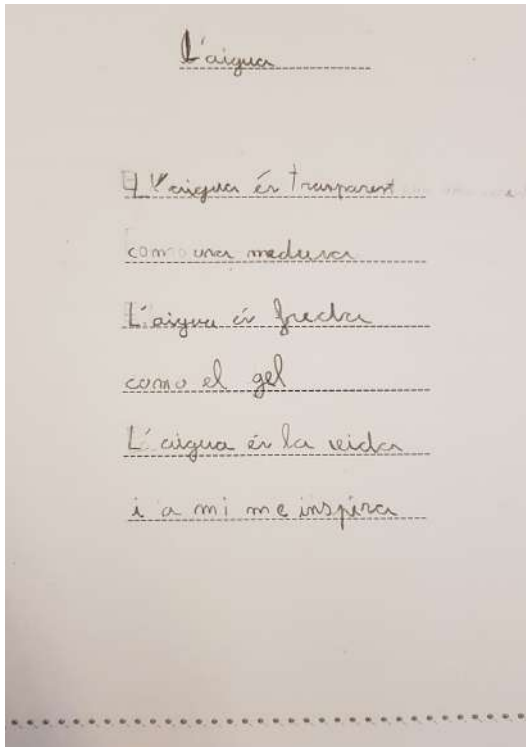 L'aigua
L'aigua és trasparent
como una medusa
L'aigua és freda
como el gel
L'aigua és la vida
i a mi me inspira